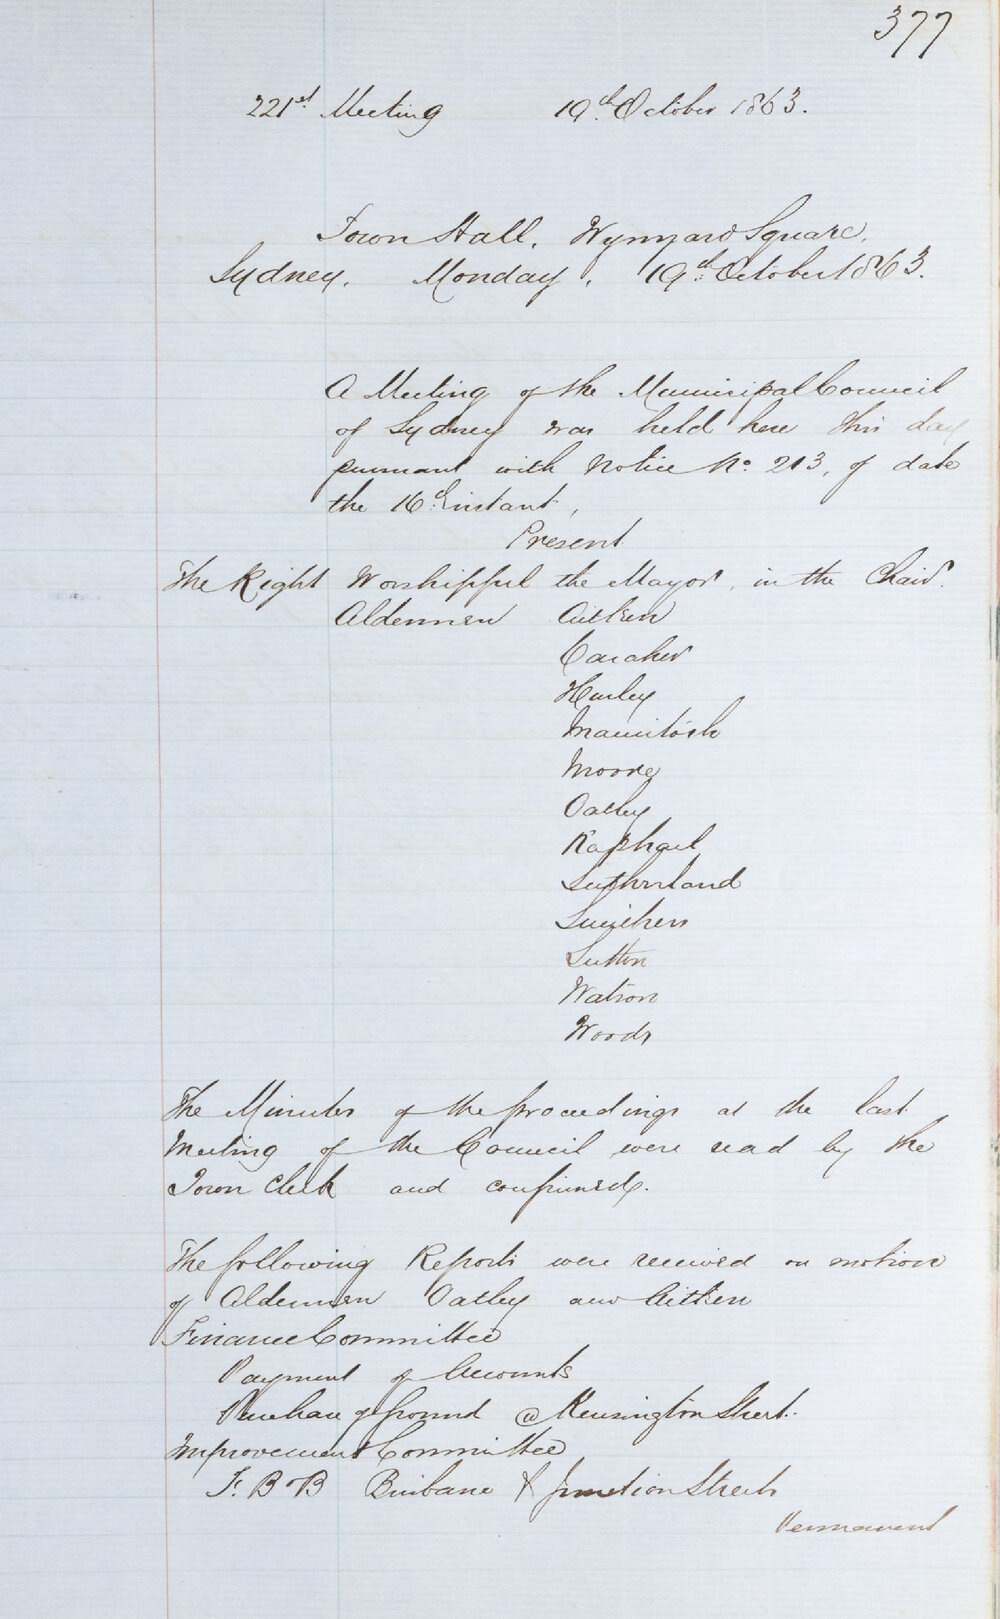 377
221st Meeting 19th October 1863.
Town Hall, Wynyard Square,
Sydney, Monday, 19th October 1863.
A Meeting of the Municipal Council
of Sydney was held here this day
pursuant with Notice No. 213, of date
the 16th instant,
Present
The Right Worshipful the Mayor, in the Chair.
Aldermen Aitken
Caraher
Hurley
Macintosh
Moore
Oatley
Raphael
Sutherland
Smithers
Sutton
Watson
Woods
The Minutes of the proceedings at the last
Meeting of the Council were read by the
Town Clerk and confirmed.
The following Reports were received on motion
of Aldermen Oatley and Aitken
Finance Committee
Payment of Accounts
Purchase of ground @ Kensington Street.
Improvement Committee
F. B B Brisbane & Junction Streets
Permanent